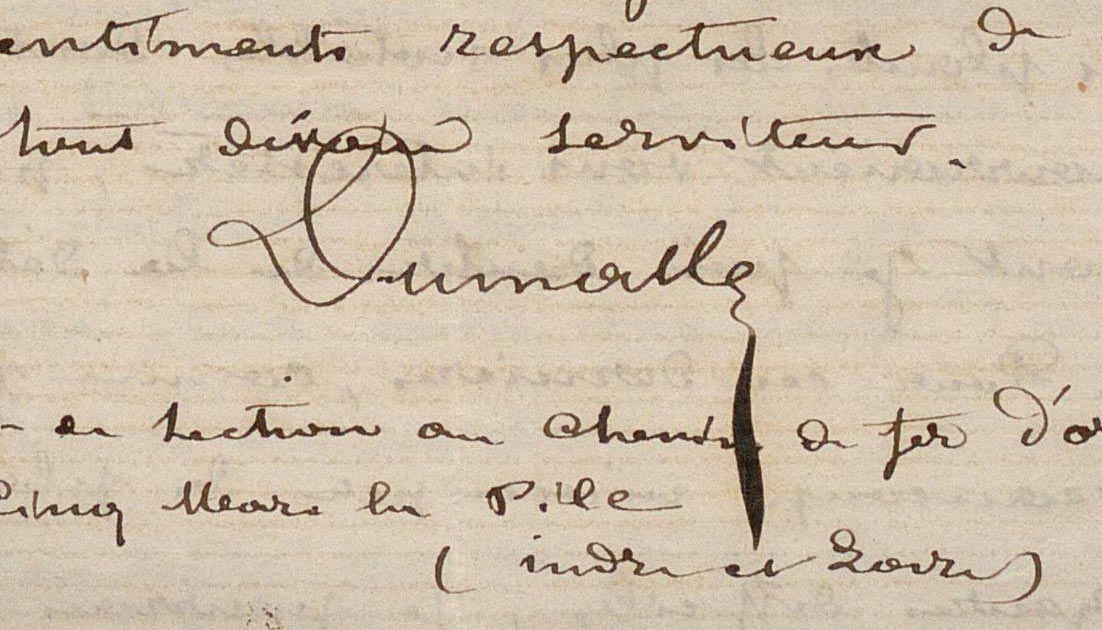 entiments respectueux de
tout dévoué serviteur.
Dumalle
de section au chemin de fer d'o
Cinq Mars la Pile
( indre et Loire )